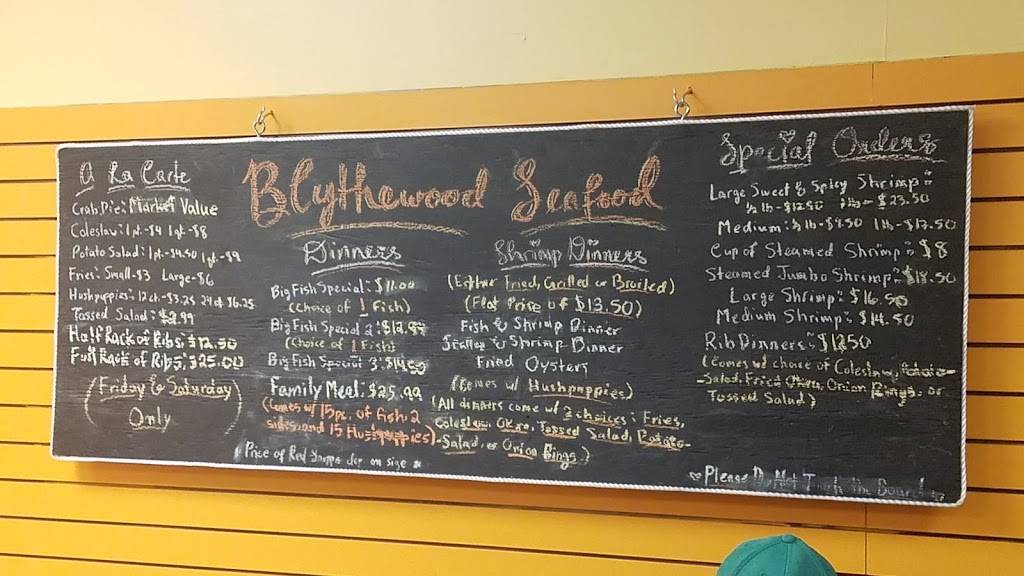 Blythewood Seafood
A La Carte
Crab Pie: Market Value
Coleslaw: 1pt-$4 1qt-$8
Potato Salad: 1pt-$4.50 1qt-$9
Fries: Small-$3 Large-$6
Hushpuppies: 12ct-$3.25 24ct $6.25
Tossed Salad: $2.99
Half Rack of Ribs: $12.50
Full Rack of Ribs: $25.00
(Friday & Saturday
Only)
Dinners
Big Fish Special: $11.00
(Choice of 1 Fish)
Big Fish Special 2:
(Choice of 1 Fish)
Big Fish Special 3:
Family Meal: $25.99
(Comes w/ 15pc. of fish, 2
sides, and 15 Hushpuppies)
Price of Red dep on size
Shrimp Dinners
(Either Fried, Grilled or Broiled)
(Flat Price of $13.50)
Fish & Shrimp Dinner
Scallop & Shrimp Dinner
Fried Oysters
(Comes w/ Hushpuppies)
(All dinners come w/ 2 choices: Fries,
Coleslaw, Okra, Tossed Salad, Potato-
-Salad, or Onion Rings)
Special Orders
Large Sweet & Spicy Shrimp:
½ lb-$12.50 1lb-$23.50
Medium: ½ lb- 1lb-$17.50
Cup of Steamed Shrimp: $8
Steamed Jumbo Shrimp: $18.50
Large Shrimp: $16.50
Medium Shrimp: $14.50
Rib Dinners: $12.50
(Comes w/ choice of Coleslaw, Potato-
-Salad, Fried Okra, Onion Rings, or
Tossed Salad)
Please Do Not Touch the Board